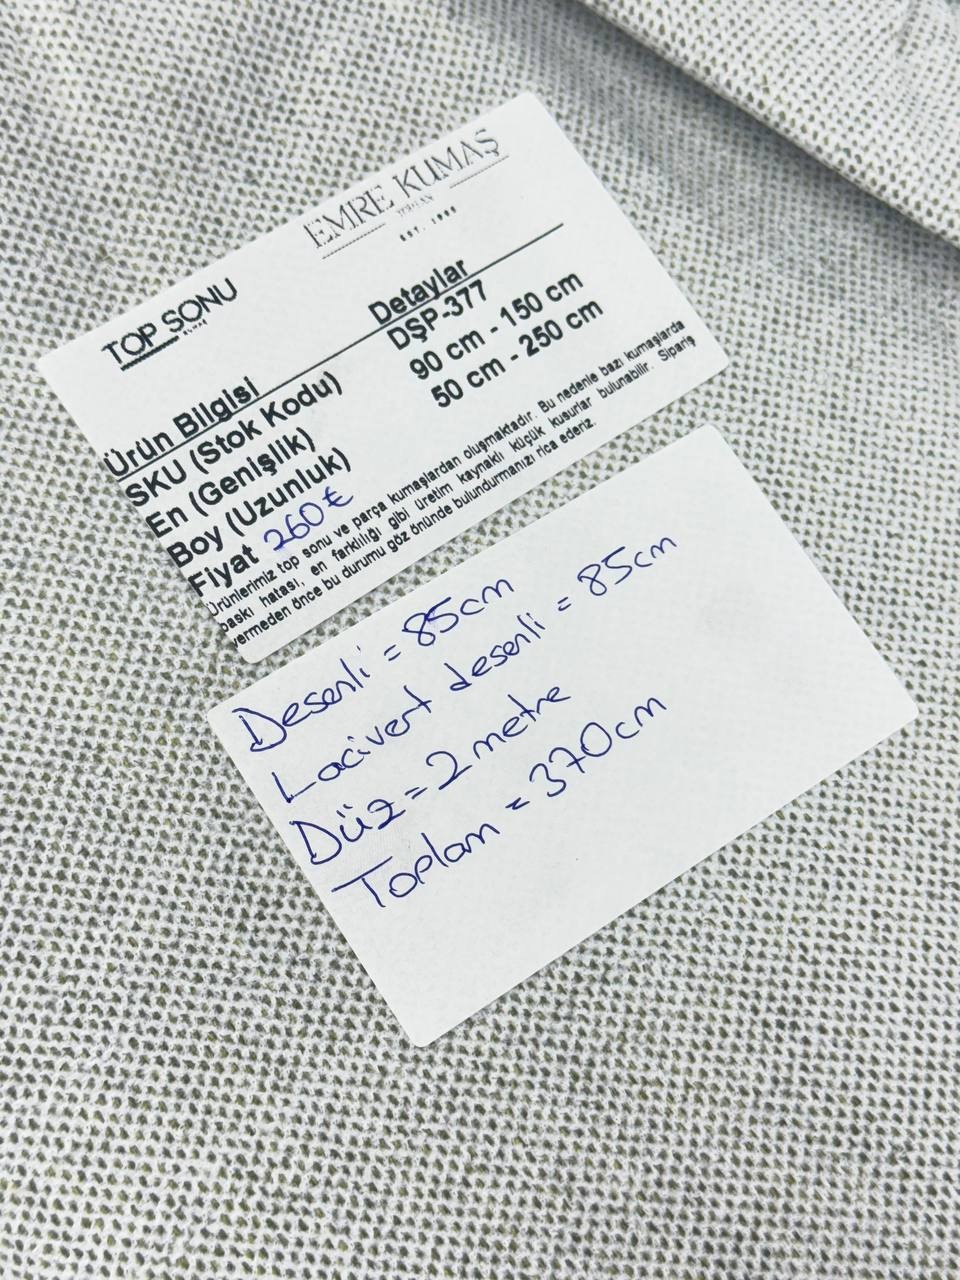 EMRE KUMAŞ
EST. 1966
TOP SONU
Ürün Bilgisi Detaylar
SKU (Stok Kodu) DŞP-377
En (Genişlik) 90 cm - 150 cm
Boy (Uzunluk) 50 cm - 250 cm
Fiyat 260€
Ürünlerimiz top sonu ve parça kumaşlardan oluşmaktadır. Bu nedenle bazı kumaşlarda
baskı hatası, en farklılığı gibi üretim kaynaklı küçük kusurlar bulunabilir. Sipariş
vermeden önce bu durumu göz önünde bulundurmanızı rica ederiz.
Desenli = 85cm
Lacivert desenli = 85cm
Düz = 2 metre
Toplam = 370cm